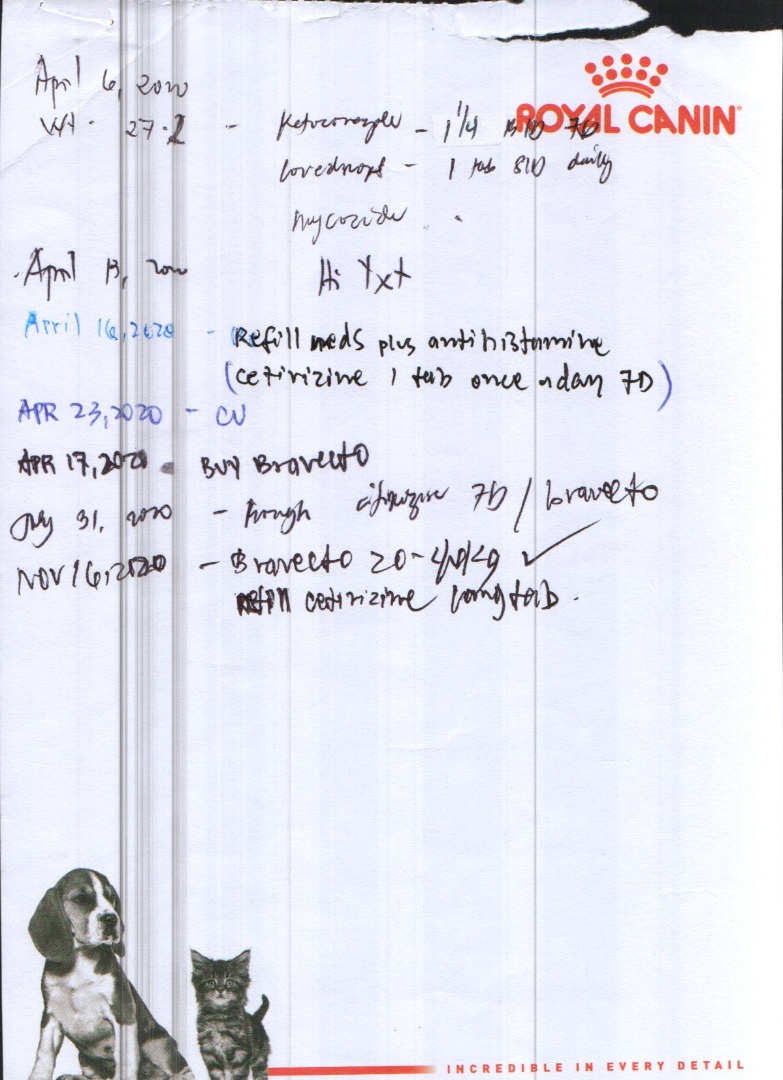 ROYAL CANIN
April 6, 2020
Wt. 27.2 - Ketoconazole - 1 1/4 BID 7D
- 1 tab SID daily
Mycocide
April 13, 2020
April 16, 2020 - Refill meds plus antihistamine
(cetirizine 1 tab once a day 7D)
APR 23, 2020 - CU
APR 17, 2020 - BUY Bravecto
July 31, 2020 - 7D / bravecto
NOV 16, 2020 - Bravecto 20-40kg ✓
refill cetirizine 10mg tab.
INCREDIBLE IN EVERY DETAIL